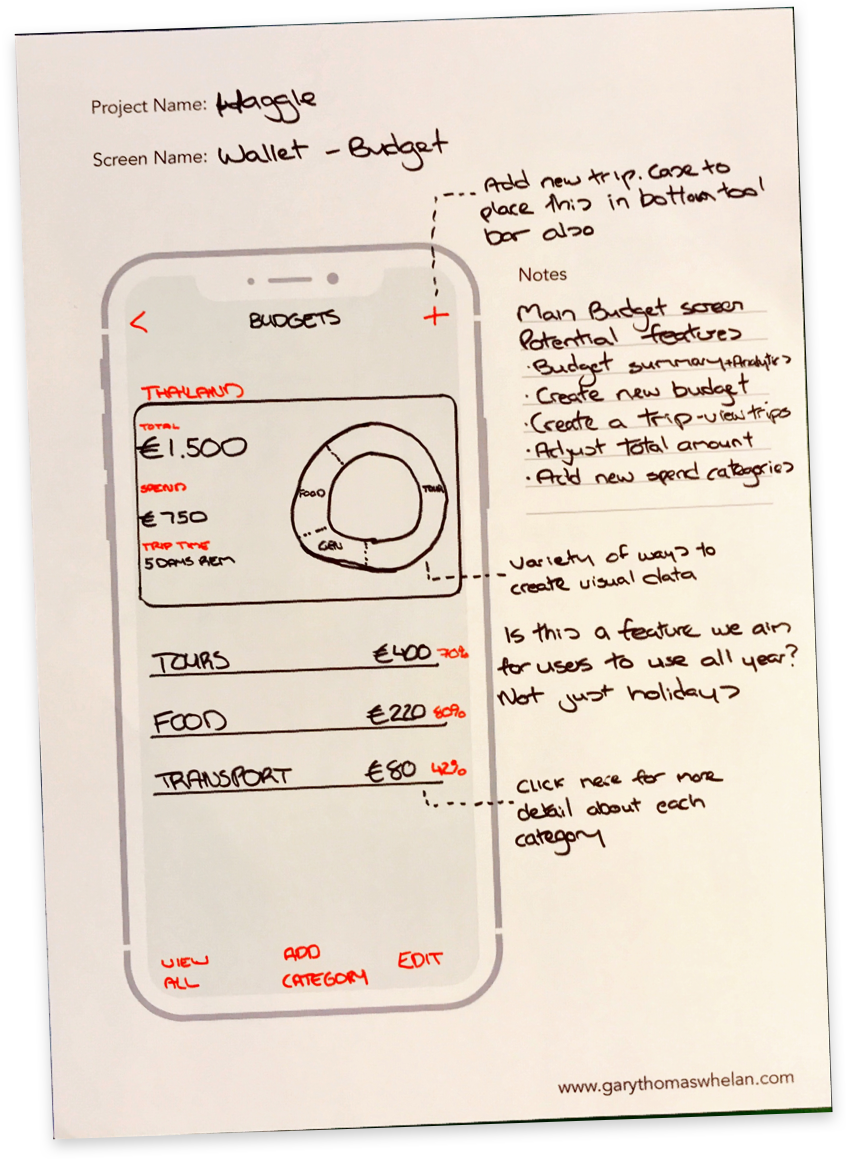 Project Name: Haggle
Screen Name: Wallet - Budget
Add new trip. Case to
place this in bottom tool
bar also
Notes
Main Budget screen
Potential features
· Budget summary + Analytics
· Create new budget
· Create a trip - view trips
· Adjust total amount
· Add new spend categories
<
BUDGETS
+
THAILAND
TOTAL
€1.500
SPEND
€750
TRIP TIME
5 DAYS REM
FOOD
TOUR
GEN
Variety of ways to
create visual data
Is this a feature we aim
for users to use all year?
Not just holidays
TOURS €400 70%
FOOD €220 80%
TRANSPORT €80 42%
Click here for more
detail about each
category
VIEW
ALL
ADD
CATEGORY
EDIT
www.garythomaswhelan.com